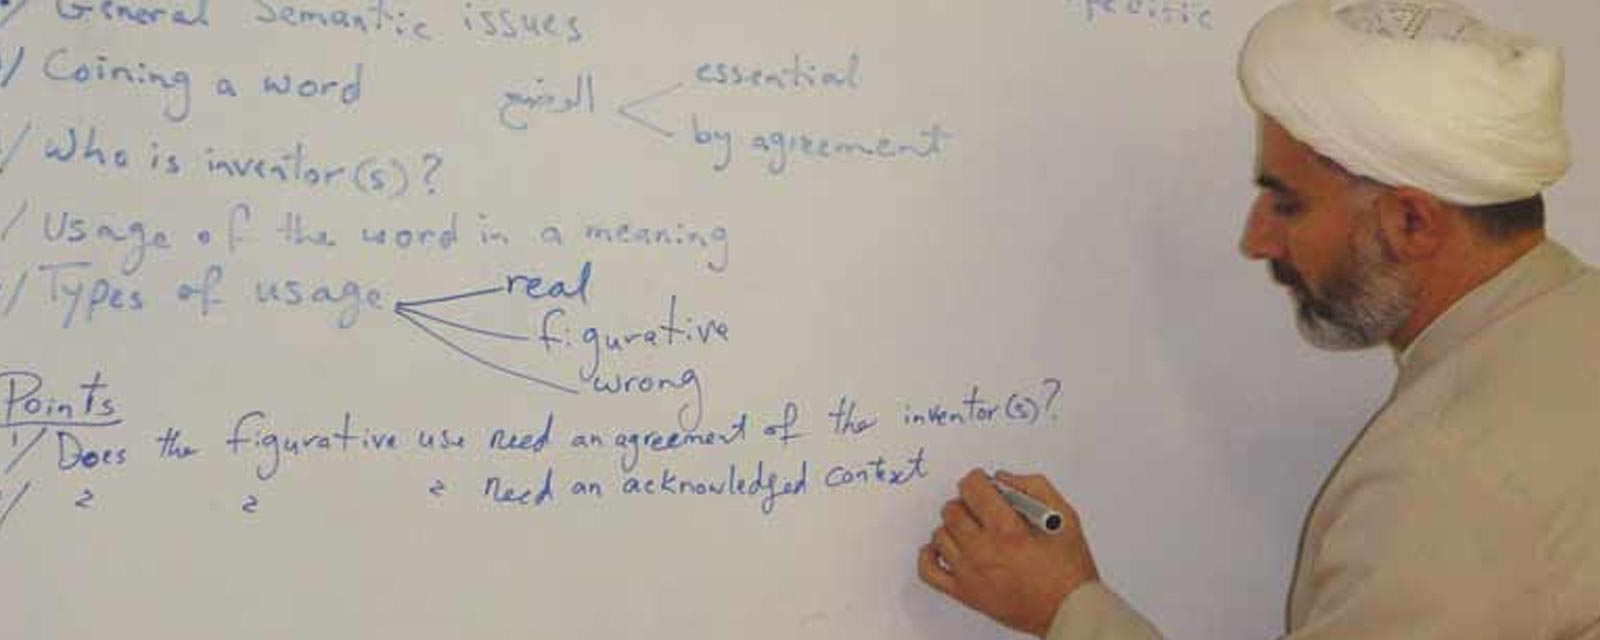 General Semantic issues
Coining a word الوضع essential
by agreement
/ Who is inventor(s)?
/ Usage of the word in a meaning
/ Types of usage real
figurative
wrong
Points
1/ Does the figurative use need an agreement of the inventor(s)?
/ 〃 〃 〃 need an acknowledged context